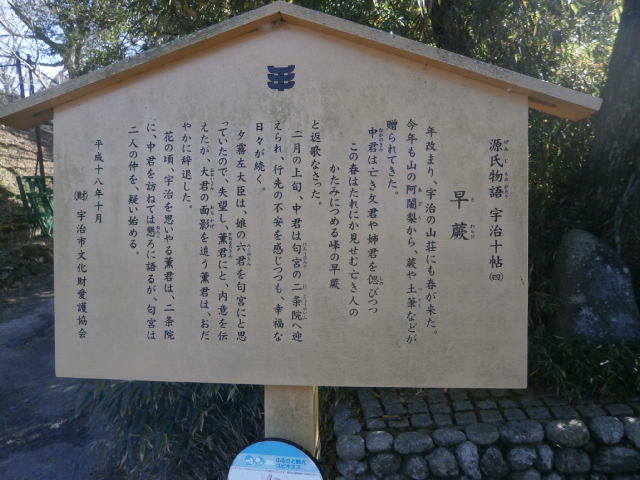 源氏物語 宇治十帖 (四)
早蕨
年改まり、宇治の山荘にも春が来た。
今年も山の阿闍梨から、蕨や土筆などが
贈られてきた。
中君は亡き父君や姉君を偲びつつ
この春はたれにか見せむ亡き人の
かたみにつめる峰の早蕨
と返歌なさった。
二月の上旬、中君は匂宮の二条院へ迎
えられ、行先の不安を感じつつも、幸福な
日々が続く。
夕霧左大臣は、娘の六君を匂宮にと思
っていたので、失望し、薫君にと、内意を伝
えたが、大君の面影を追う薫君は、おだ
やかに辞退した。
花の頃、宇治を思いやる薫君は、二条院
に、中君を訪ねては懇ろに語るが、匂宮は
二人の仲を、疑い始める。
平成十八年十月
(財) 宇治市文化財愛護協会
ふるさと観光